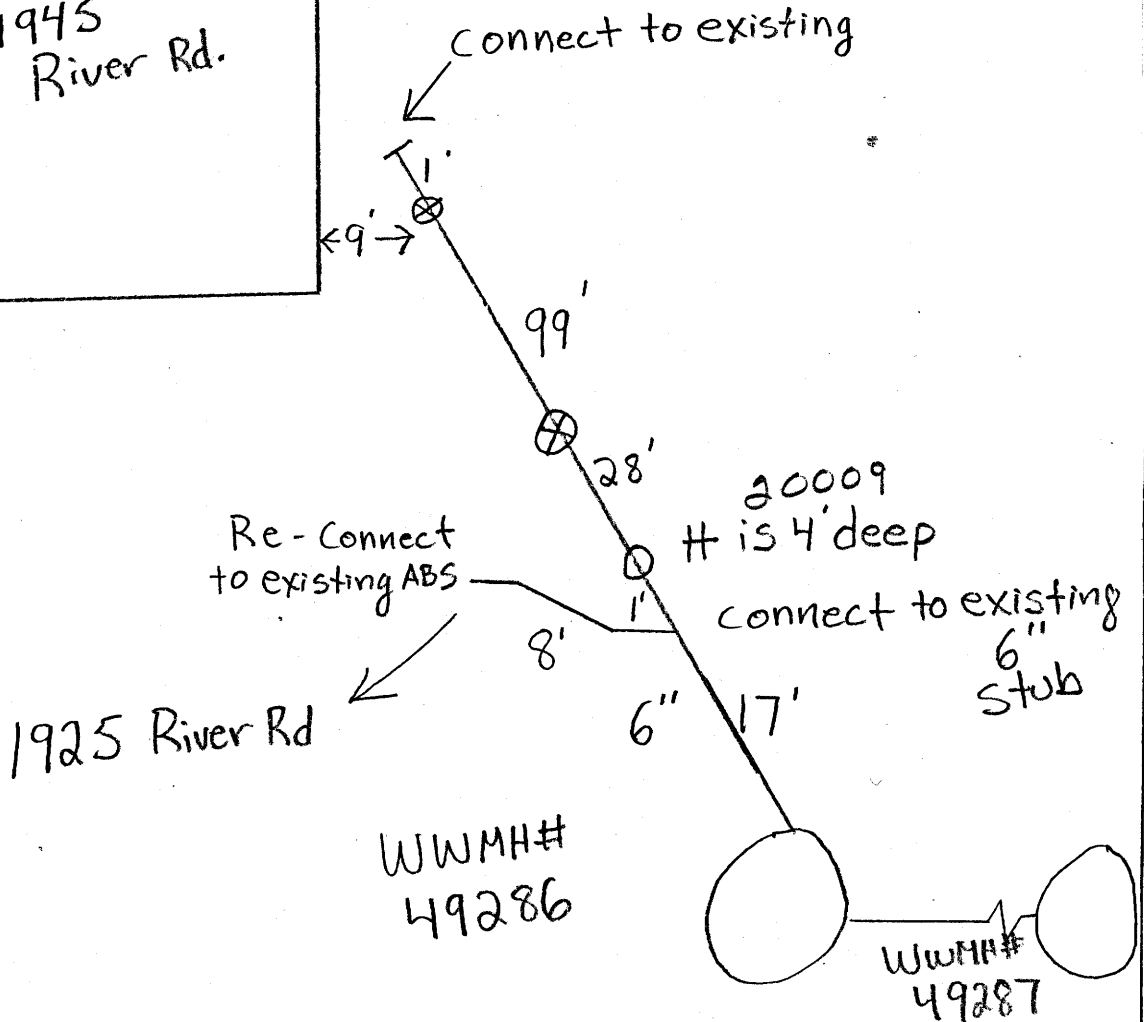 1945
River Rd.
Connect to existing
1'
9'
99'
28'
20009
# is 4' deep
Re-Connect
to existing ABS
1'
connect to existing
6"
stub
8'
6"
17'
1925 River Rd
WWMH#
49286
WWMH#
49287